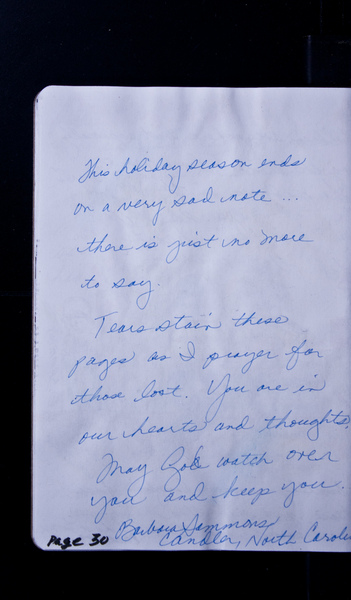 This holiday season ends
on a very sad note ...
there is just no more
to say.
Tears stain these
pages as I prayer for
those lost. You are in
our hearts and thoughts.
May God watch over
you and keep you.
Barbara Sammons
Page 30 Candler, North Carolin